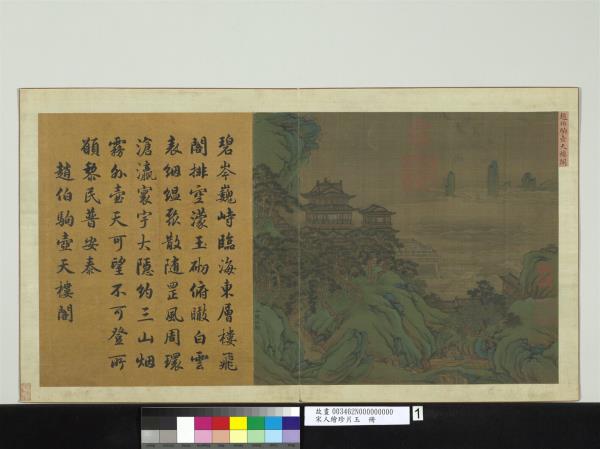 碧岑巍峙臨海東層樓飛
閣排空濛玉砌俯瞰白雲
表絪縕聚散隨罡風周環
滄瀛寰宇大隱約三山烟
霧外壺天可望不可登所
願黎民普安泰
趙伯駒壺天樓閣
趙伯駒壺天樓閣
故畫 003462N000000000
宋人繪珍片玉 冊
1